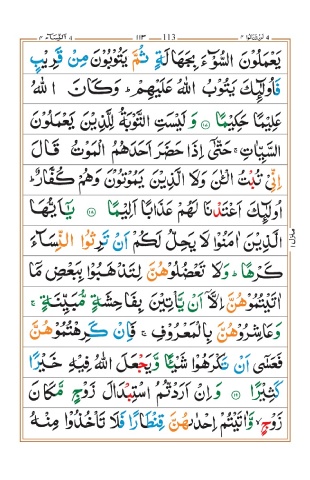 لن تنالوا ٤ 113 ١١٣ النساء ٤
يَعْمَلُوْنَ السُّوْٓءَ بِجَهَالَةٍ ثُمَّ يَتُوْبُوْنَ مِنْ قَرِيْبٍ
فَاُولٰٓئِكَ يَتُوْبُ اللّٰهُ عَلَيْهِمْ ؕ وَكَانَ اللّٰهُ
عَلِيْمًا حَكِيْمًا ﴿۱۷﴾ وَلَيْسَتِ التَّوْبَةُ لِلَّذِيْنَ يَعْمَلُوْنَ
السَّيِّاٰتِ ۚ حَتّٰٓى اِذَا حَضَرَ اَحَدَهُمُ الْمَوْتُ قَالَ
اِنِّىْ تُبْتُ الْـٰٔنَ وَلَا الَّذِيْنَ يَمُوْتُوْنَ وَهُمْ كُفَّارٌ ؕ
اُولٰٓئِكَ اَعْتَدْنَا لَهُمْ عَذَابًا اَلِيْمًا ﴿۱۸﴾ يٰۤاَيُّهَا
الَّذِيْنَ اٰمَنُوْا لَا يَحِلُّ لَكُمْ اَنْ تَرِثُوا النِّسَآءَ
كَرْهًا ؕ وَلَا تَعْضُلُوْهُنَّ لِتَذْهَبُوْا بِبَعْضِ مَاۤ
اٰتَيْتُمُوْهُنَّ اِلَّاۤ اَنْ يَّاْتِيْنَ بِفَاحِشَةٍ مُّبَيِّنَةٍ ۚ
وَعَاشِرُوْهُنَّ بِالْمَعْرُوْفِ ۚ فَاِنْ كَرِهْتُمُوْهُنَّ
فَعَسٰۤى اَنْ تَكْرَهُوْا شَيْـًٔا وَّيَجْعَلَ اللّٰهُ فِيْهِ خَيْرًا
كَثِيْرًا ﴿۱۹﴾ وَاِنْ اَرَدْتُّمُ اسْتِبْدَالَ زَوْجٍ مَّكَانَ
زَوْجٍ ۙ وَّاٰتَيْتُمْ اِحْدٰٮهُنَّ قِنْطَارًا فَلَا تَاْخُذُوْا مِنْهُ
منزل ١